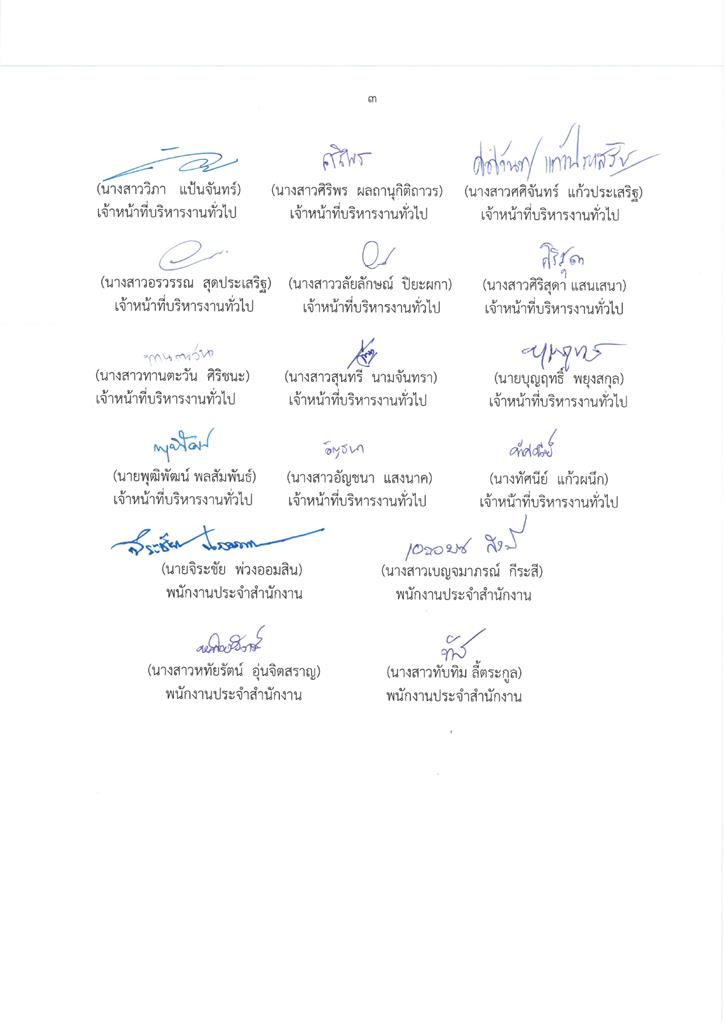 ๓
ศิริพร
ศศิจันทร์ แก้วประเสริฐ
(นางสาววิภา แป้นจันทร์) (นางสาวศิริพร ผลถานุกิติถาวร) (นางสาวศศิจันทร์ แก้วประเสริฐ)
เจ้าหน้าที่บริหารงานทั่วไป เจ้าหน้าที่บริหารงานทั่วไป เจ้าหน้าที่บริหารงานทั่วไป
ศิริสุดา
(นางสาวอรวรรณ สุดประเสริฐ) (นางสาววลัยลักษณ์ ปิยะผกา) (นางสาวศิริสุดา แสนเสนา)
เจ้าหน้าที่บริหารงานทั่วไป เจ้าหน้าที่บริหารงานทั่วไป เจ้าหน้าที่บริหารงานทั่วไป
ทานตะวัน
(นางสาวทานตะวัน ศิริชนะ) (นางสาวสุนทรี นามจันทรา) (นายบุญฤทธิ์ พยุงสกุล)
เจ้าหน้าที่บริหารงานทั่วไป เจ้าหน้าที่บริหารงานทั่วไป เจ้าหน้าที่บริหารงานทั่วไป
พุฒิพัฒน์ อัญชนา ทัศนีย์
(นายพุฒิพัฒน์ พลสัมพันธ์) (นางสาวอัญชนา แสงนาค) (นางทัศนีย์ แก้วผนึก)
เจ้าหน้าที่บริหารงานทั่วไป เจ้าหน้าที่บริหารงานทั่วไป เจ้าหน้าที่บริหารงานทั่วไป
(นายจิระชัย พ่วงออมสิน) (นางสาวเบญจมาภรณ์ กีระสี)
พนักงานประจำสำนักงาน พนักงานประจำสำนักงาน
(นางสาวหทัยรัตน์ อุ่นจิตสราญ) (นางสาวทับทิม ลี้ตระกูล)
พนักงานประจำสำนักงาน พนักงานประจำสำนักงาน